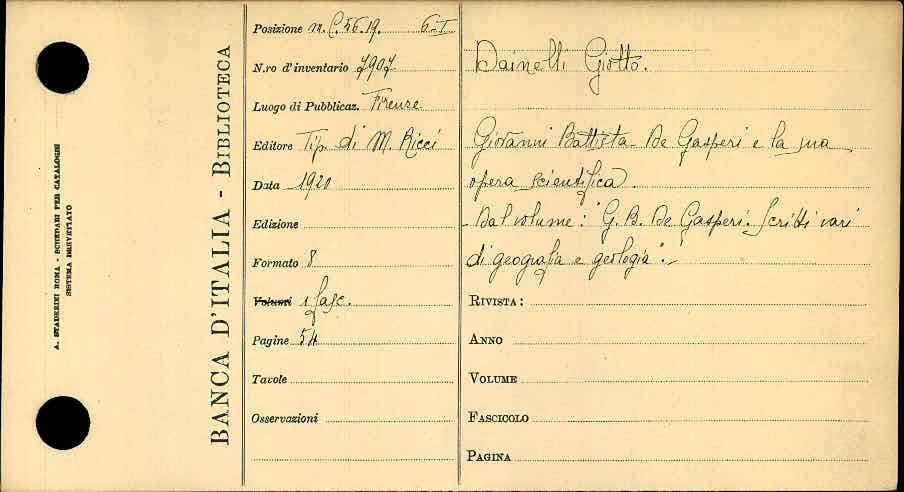 A. STADERINI ROMA - SCHEDARI PER CATALOGHI
SISTEMA BREVETTATO
BANCA D'ITALIA - BIBLIOTECA
Posizione m. C. 56. 19.
N.ro d'inventario 7907
Luogo di Pubblicaz. Firenze
Editore Tip. di M. Ricci
Data 1920
Edizione
Formato 8
Volumi 1 fasc.
Pagine 54
Tavole
Osservazioni
Dainelli Giotto.
Giovanni Battista De Gasperi e la sua
opera scientifica.
- Dal volume: "G. B. De Gasperi. Scritti vari
di geografia e geologia".-
RIVISTA:
ANNO
VOLUME
FASCICOLO
PAGINA